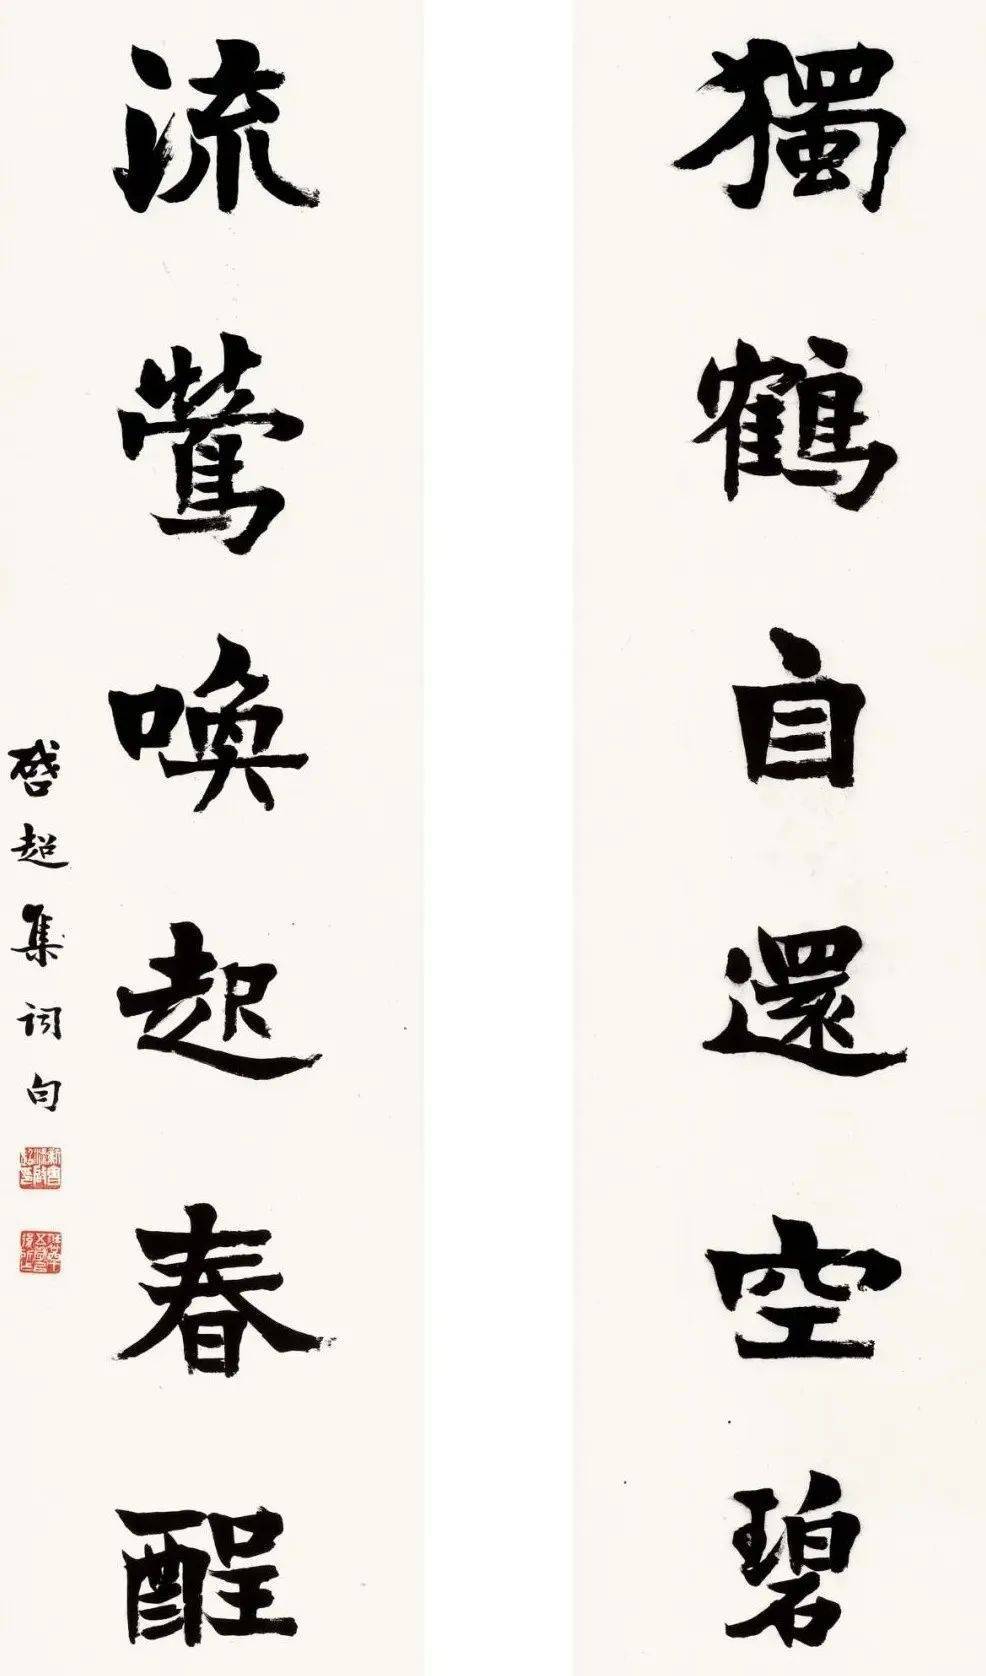 獨鶴自還空碧
流鶯喚起春酲
啓超集詞句